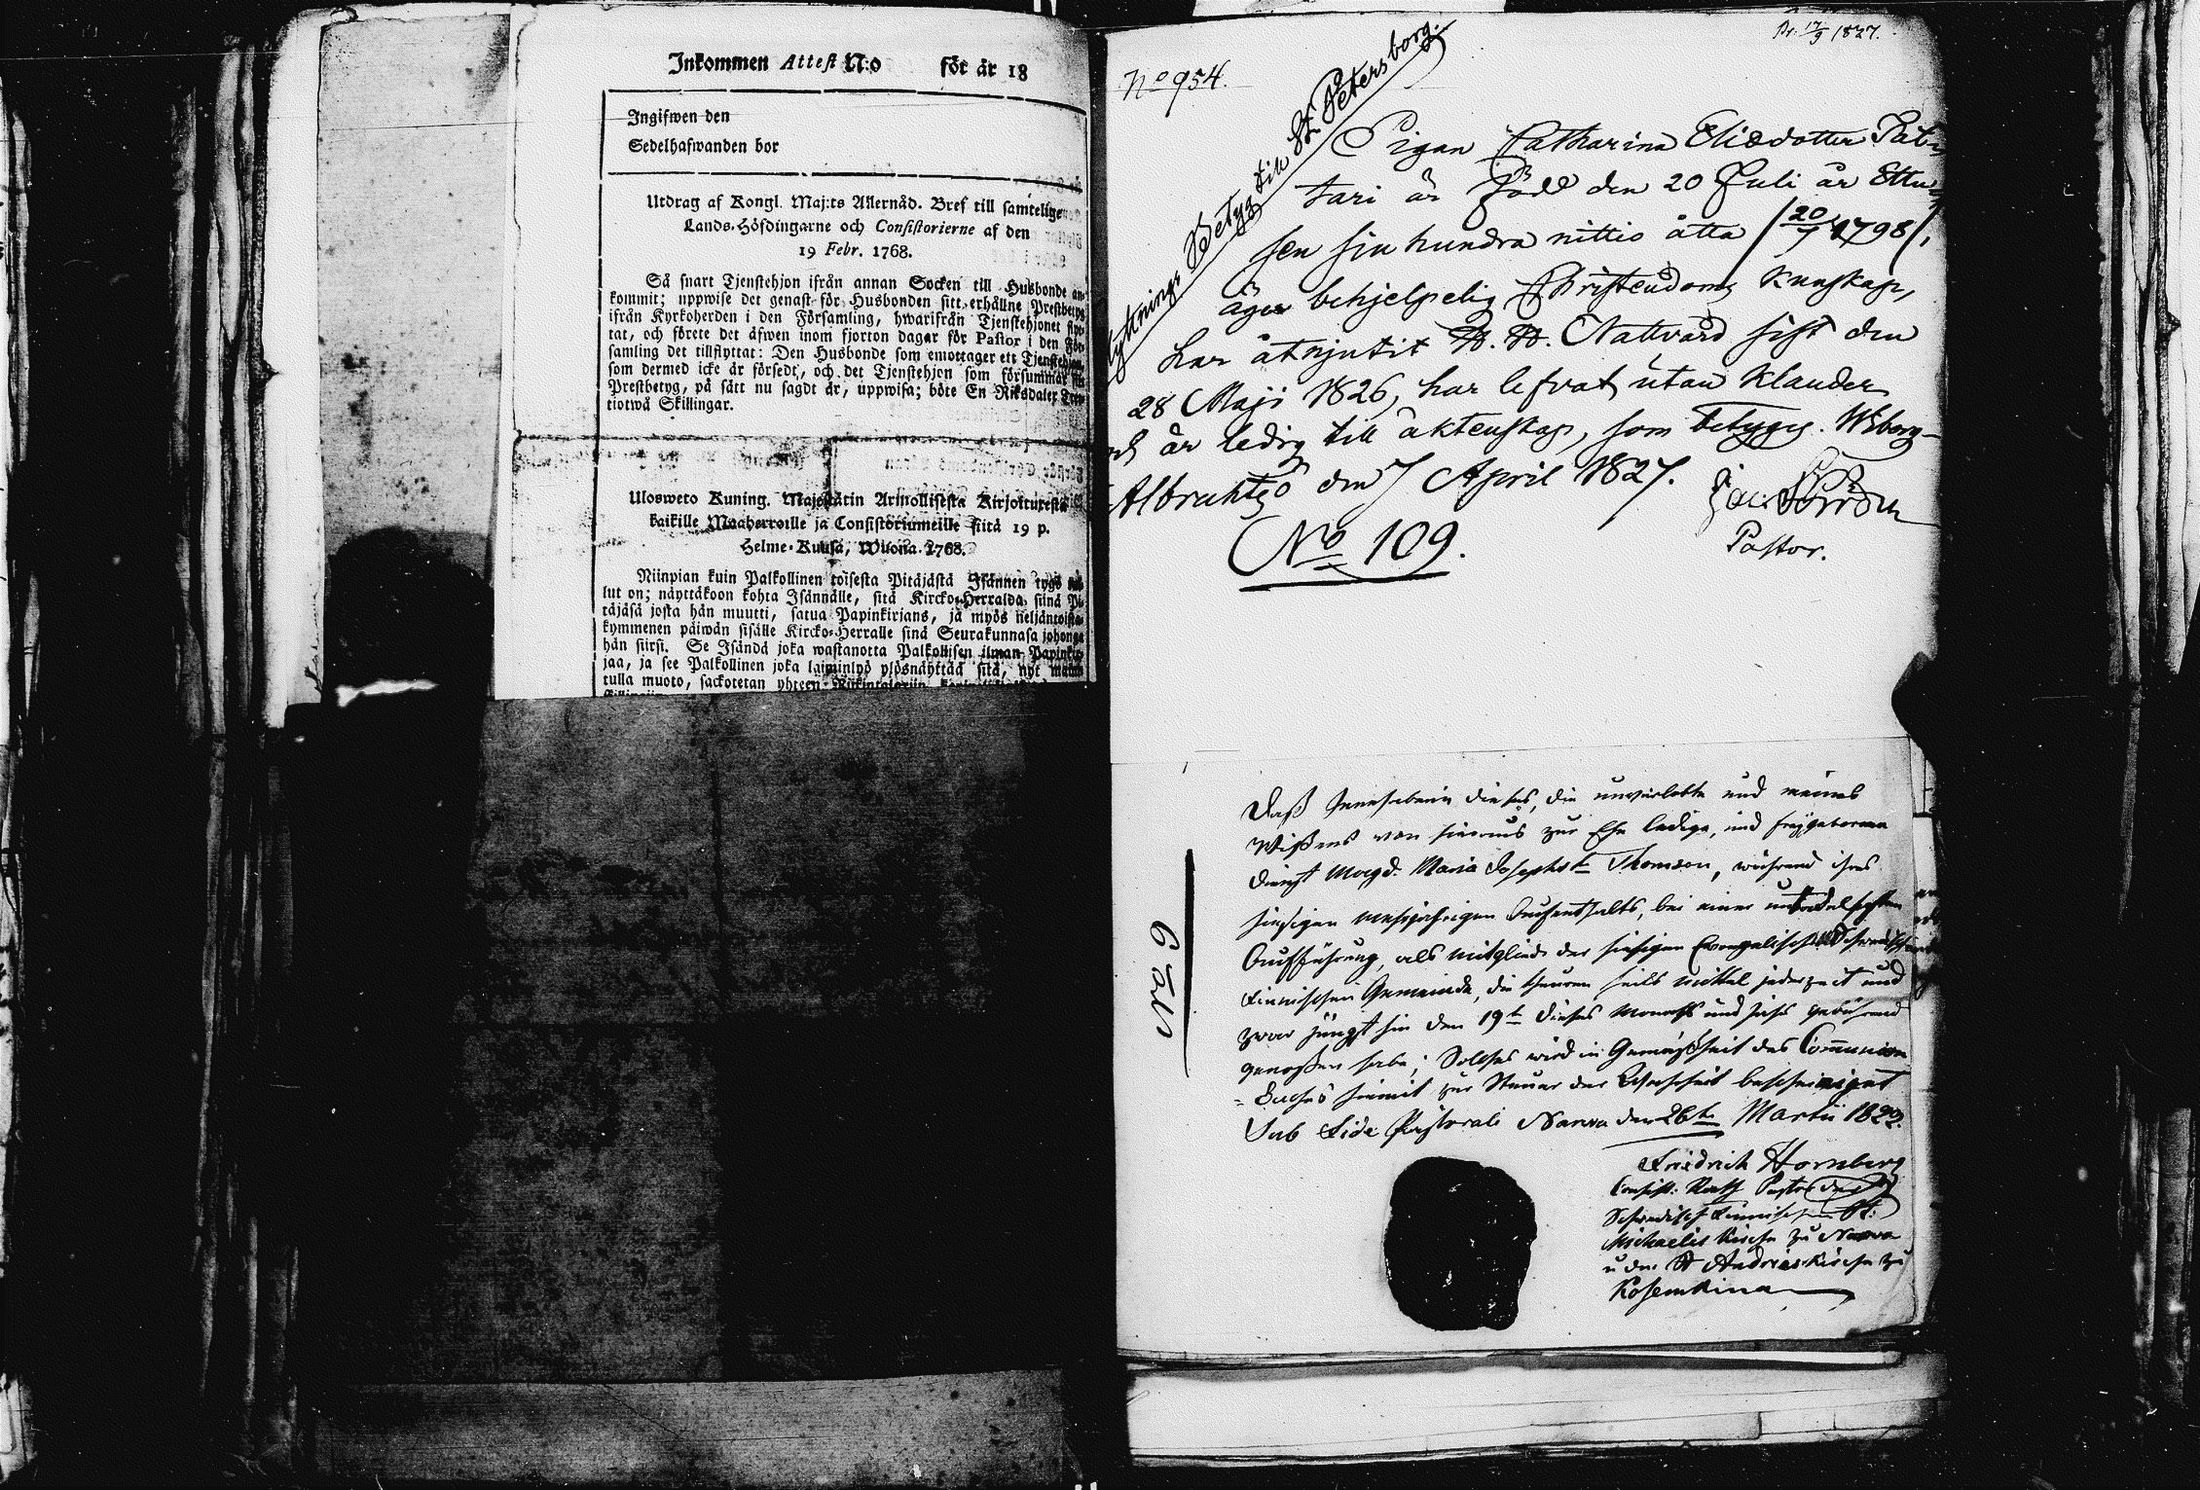 Inkommen Attest N:o för år 18
Ingifwen den
Sedelhafwanden bor
Utdrag af Kongl. Maj:ts Allernåd. Bref till samtelige
Lands-Höfdingarne och Consistorierne af den
19 Febr. 1768.
Så snart Tjenstehjon ifrån annan Socken till Husbonde an-
kommit; uppwise det genast för Husbonden sitt erhållne Prestbetyg
ifrån Kyrkoherden i den Församling, hwarifrån Tjenstehjonet flyt-
tat, och förete det äfwen inom fjorton dagar för Pastor i den För-
samling det tillflyttat: Den Husbonde som emottager ett Tjenstehjon,
som dermed icke är försedt, och det Tjenstehjon som försummar
Prestbetyg, på sätt nu sagdt är, uppwisa; böte En Riksdaler Tret-
tiotwå Skillingar.
Ulosweto Kuning. Majestätin Armollisesta Kirjoituxesta
kaikille Maaherroille ja Consistoriumeille siitä 19 p.
Helme-Kuusa, Wuonna 1768.
Niinpian kuin Palkollinen toisesta Pitäjästä Isännen tygö
lut on; näyttäkoon kohta Isännälle, sitä Kircko-Herralda siinä Pi-
täjäsä josta hän muutti, satua Papinkirjans, ja myös neljäntoista-
kymmenen päiwän sisälle Kircko-Herralle sinä Seurakunnasa johonga
hän siirsi. Se Isändä joka wastanotta Palkollisen ilman Papinkir-
jaa, ja see Palkollinen joka laiminlyö ylösnäyttää sitä, nyt
tulla muoto, sackotetan yhteen Riikintaleriin
No 954.
17/9 1827.
Flyttnings Betyg till St. Petersborg.
Pigan Catharina Eliædotter Pät-
tari är född den 20 Juli år Ettu-
sen sju hundra nittio åtta (20/7 1798),
äger behjelpelig Christendoms kunskap,
har åtnjutit H. H. Nattvard sist den
28 Maji 1826, har lefvat utan klander
och är ledig till äktenskap, som betygas. Wiborg-
den 7 April 1827.
Pastor.
No 109.
Daß Inhaberin dieses, die unverlobte und meines
Wißens von hieraus zur Ehe ledige, und freygeborne
Dienst Magd. Maria Josephst. Thomson, während ihres
hiesigen mehrjährigen Aufenthalts, bei einer untadelhaften
Aufführung, als Mitglied der hiesigen Evangelisch Schwedisch
Finnischen Gemeinde, die theuren Heils Mittel jederzeit und
zwar jüngst hin den 19t dieses Monats und Jahrs gebührend
genoßen habe; Solches wird in Gemäßheit des Communion
-Buches hiemit zur Steuer der Wahrheit bescheiniget
Sub Fide Pastorali Narva den 26t Martii
Friedrich Hornberg
Consist: Rath Pastor der
Schwedisch Finnischen St.
Michaelis Kirche zu Narva
u der St Andreas Kirche zu
Kosemkina